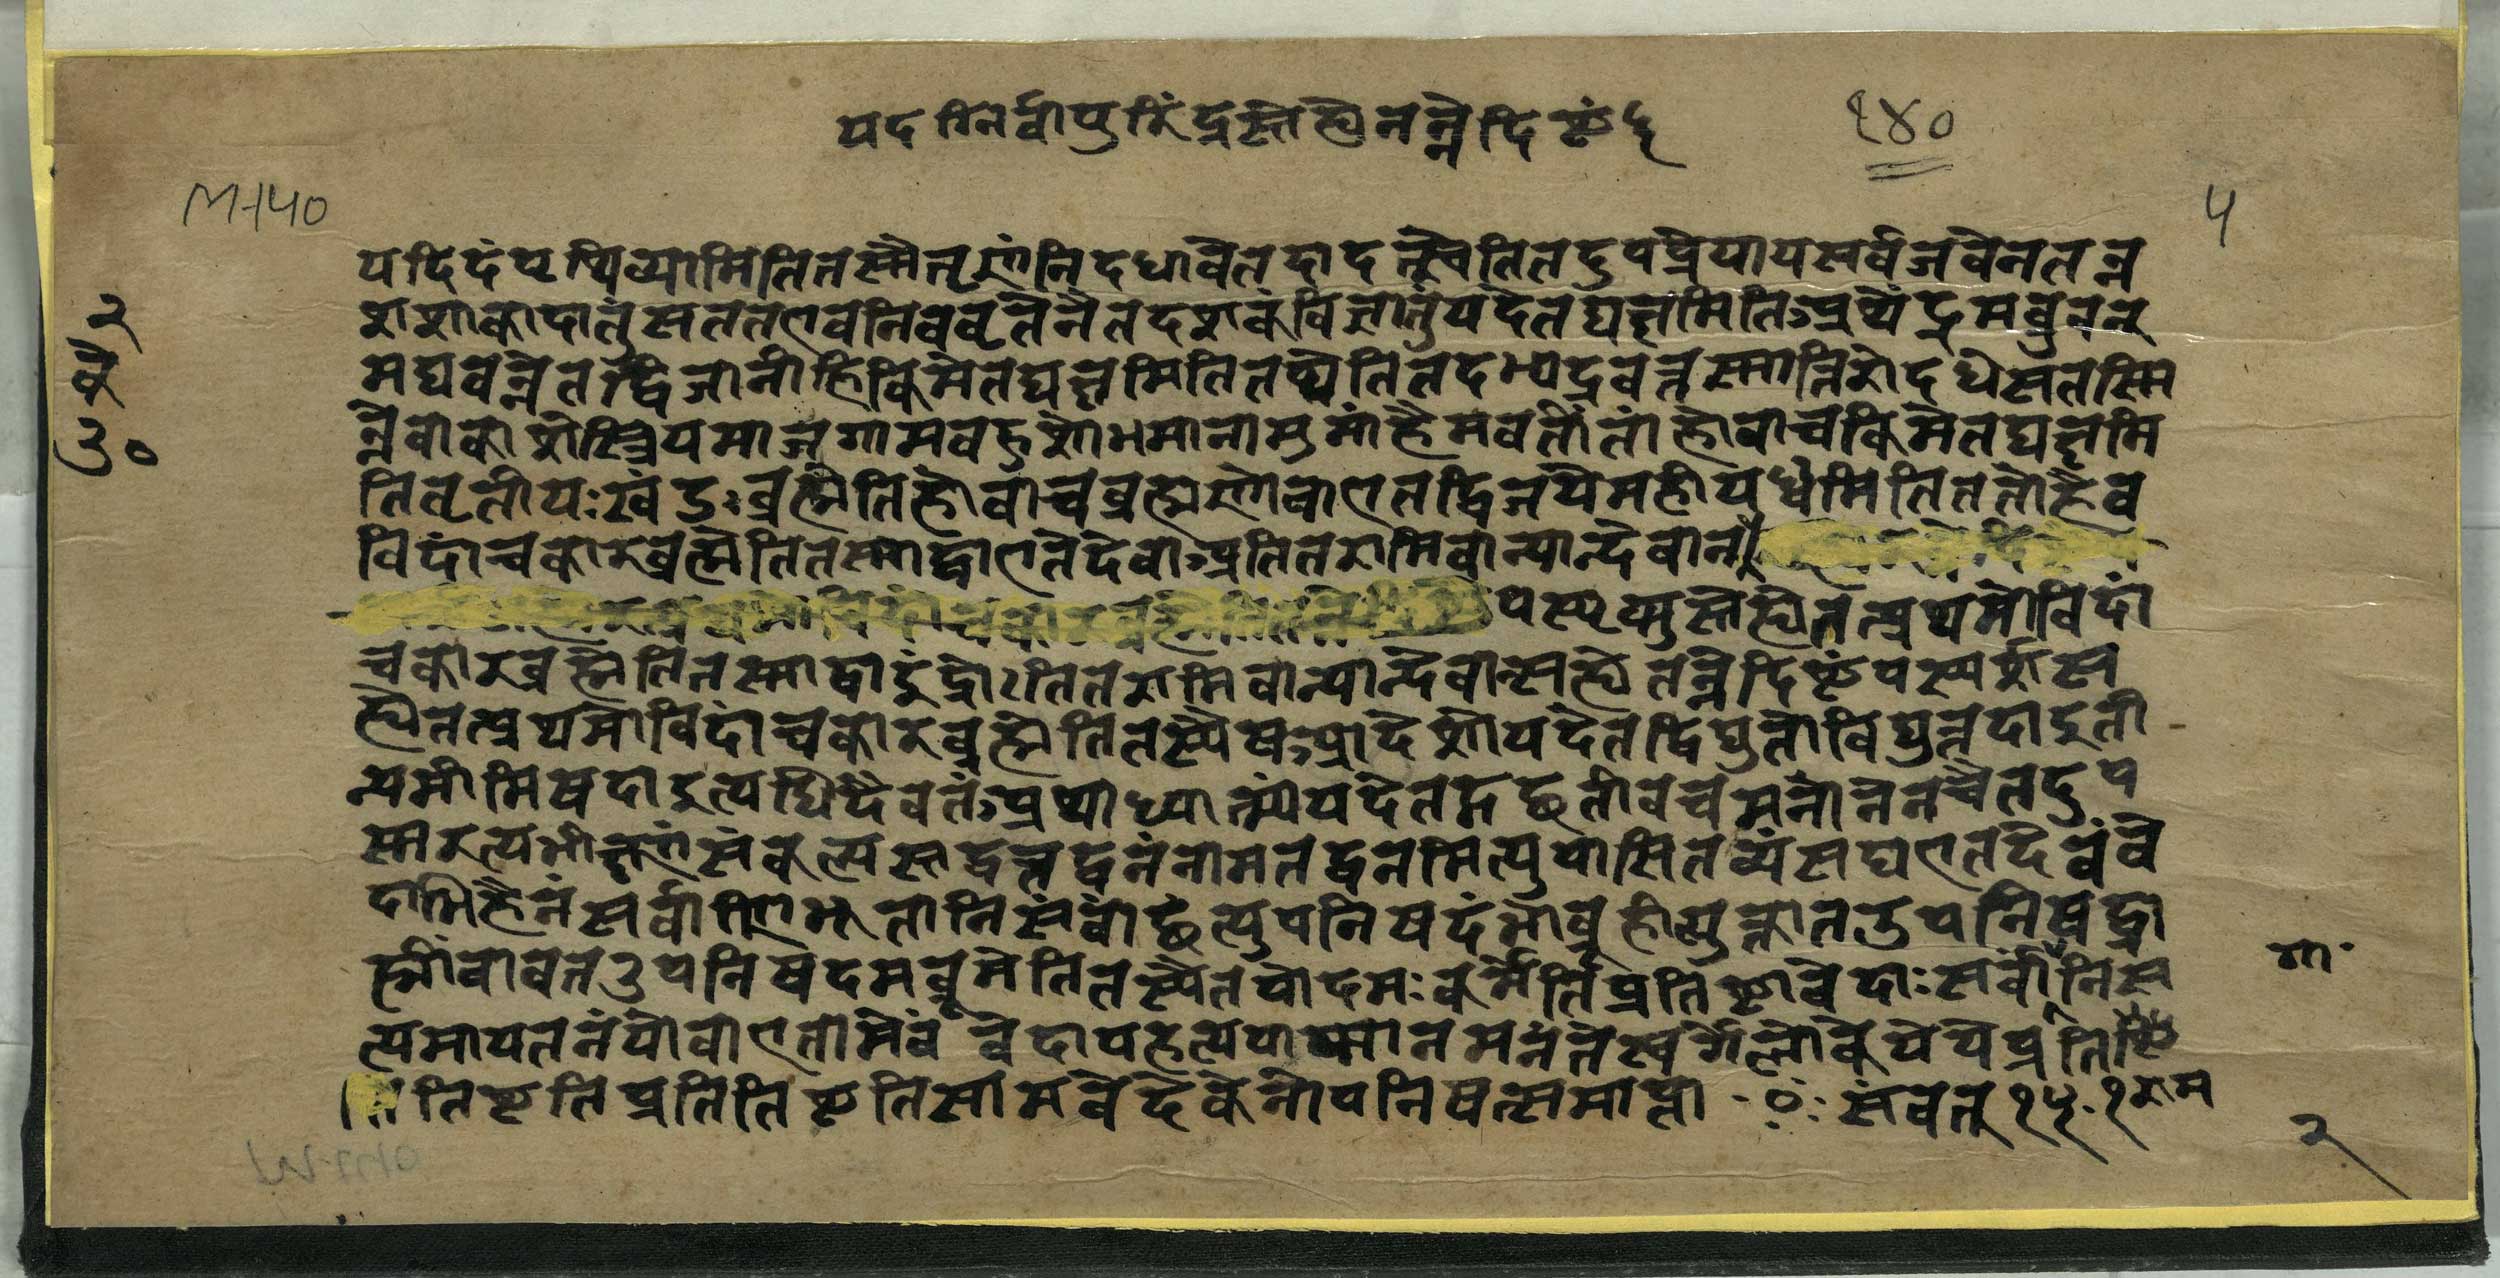 यदग्निर्वायुरिंद्रस्तेह्येनन्नेदिष्ठं
१४०
M-140
५
२
के
उ०
यदिदंपृथिव्यामितितस्मैतृणंनिदधावेतदादत्स्वेतितदुपप्रेयायसर्वजवेनतन्न
शशाकादातुंसततएवनिववृतेनैतदशकंविज्ञातुंयदेतद्यक्षमिति३प्रथेंद्रमब्रुवन्
मघवन्नेतद्विजानीहिकिमेतद्यक्षमितितथेतितदभ्यद्रवत्तस्मात्तिरोदधेसतस्मि
न्नेवाकाशेस्त्रियमाजगामबहुशोभमानामुमांहैमवतींतांहोवाचकिमेतद्यक्षमि
तितृतीयःखंडःब्रह्मेतिहोवाचब्रह्मणोवाएतद्विजयेमहीयध्वमितिततोहैव
विदांचकारब्रह्मेतितस्माद्वाएतेदेवा३प्रतितरामिवान्यान्देवान्
पस्पृशुस्तेह्येनत्प्रथमोविदां
चकारब्रह्मेतितस्माद्वाइंद्रोऽतितरामिवान्यान्देवान्सह्येनन्नेदिष्ठंपस्पर्शस
ह्येनत्प्रथमोविदांचकारब्रह्मेतितस्यैष३प्रादेशोयदेतद्विद्युतोविद्युतदाइती
न्यमीमिषदाइत्यधिदैवतं३प्रथाध्यात्मंयदेतद्गच्छतीवचमनोनेनचैतदुप
स्मरत्यभीक्ष्णंसंकल्पस्तद्धतद्वनंनामतद्वनमित्युपासितव्यंसयएतदेवंवे
दाभिहैनंसर्वाणिभूतानिसंवांछंत्युपनिषदंभोब्रूहीत्युक्तातउपनिषद्ब्रा
ह्मींवावतउपनिषदमब्रूमेतितस्यैतपोदमःकर्मेतिप्रतिष्ठावेदाःसर्वांनिस
गा॰
त्यमायतनंयोवाएतामेवंवेदापहत्यपाप्मानमनंतेस्वर्गेलोकेयेयेप्रतिष्ठि
तितिष्ठतिप्रतितिष्ठतिसामवेदेकेनोपनिषत्समाप्ता ॰ः संवत् १५१ राम
२